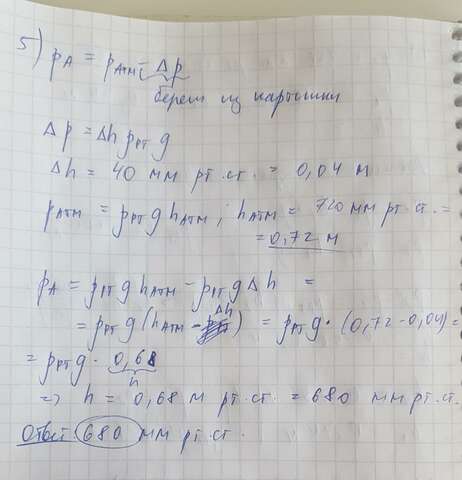 5) pA = pАТМ - Δp
берем из картинки
Δp = Δh ρРТ g
Δh = 40 мм рт.ст. = 0,04 м
pАТМ = ρРТ g hАТМ ; hАТМ = 720 мм рт.ст. =
= 0,72 м
pA = ρРТ g hАТМ - ρРТ g Δh =
= ρРТ g (hАТМ - Δh) = ρРТ g · (0,72 - 0,04) =
= ρРТ g · 0,68
h
=> h = 0,68 м рт.ст. = 680 мм рт.ст.
Ответ 680 мм рт.ст.